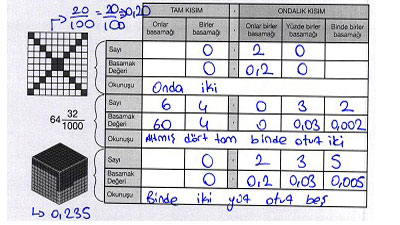 20/100 = 20/100 = 0,20
TAM KISIM ONDALIK KISIM
Onlar basamağı Birler basamağı , Onda birler basamağı Yüzde birler basamağı Binde birler basamağı
Sayı 0 , 2 0
Basamak Değeri 0 , 0,2 0
Okunuşu Onda iki
64 32/1000
Sayı 6 4 , 0 3 2
Basamak Değeri 60 4 , 0 0,03 0,002
Okunuşu Altmış dört tam binde otuz iki
Sayı 0 , 2 3 5
Basamak Değeri 0 , 0,2 0,03 0,005
Okunuşu Binde iki yüz otuz beş
0,235